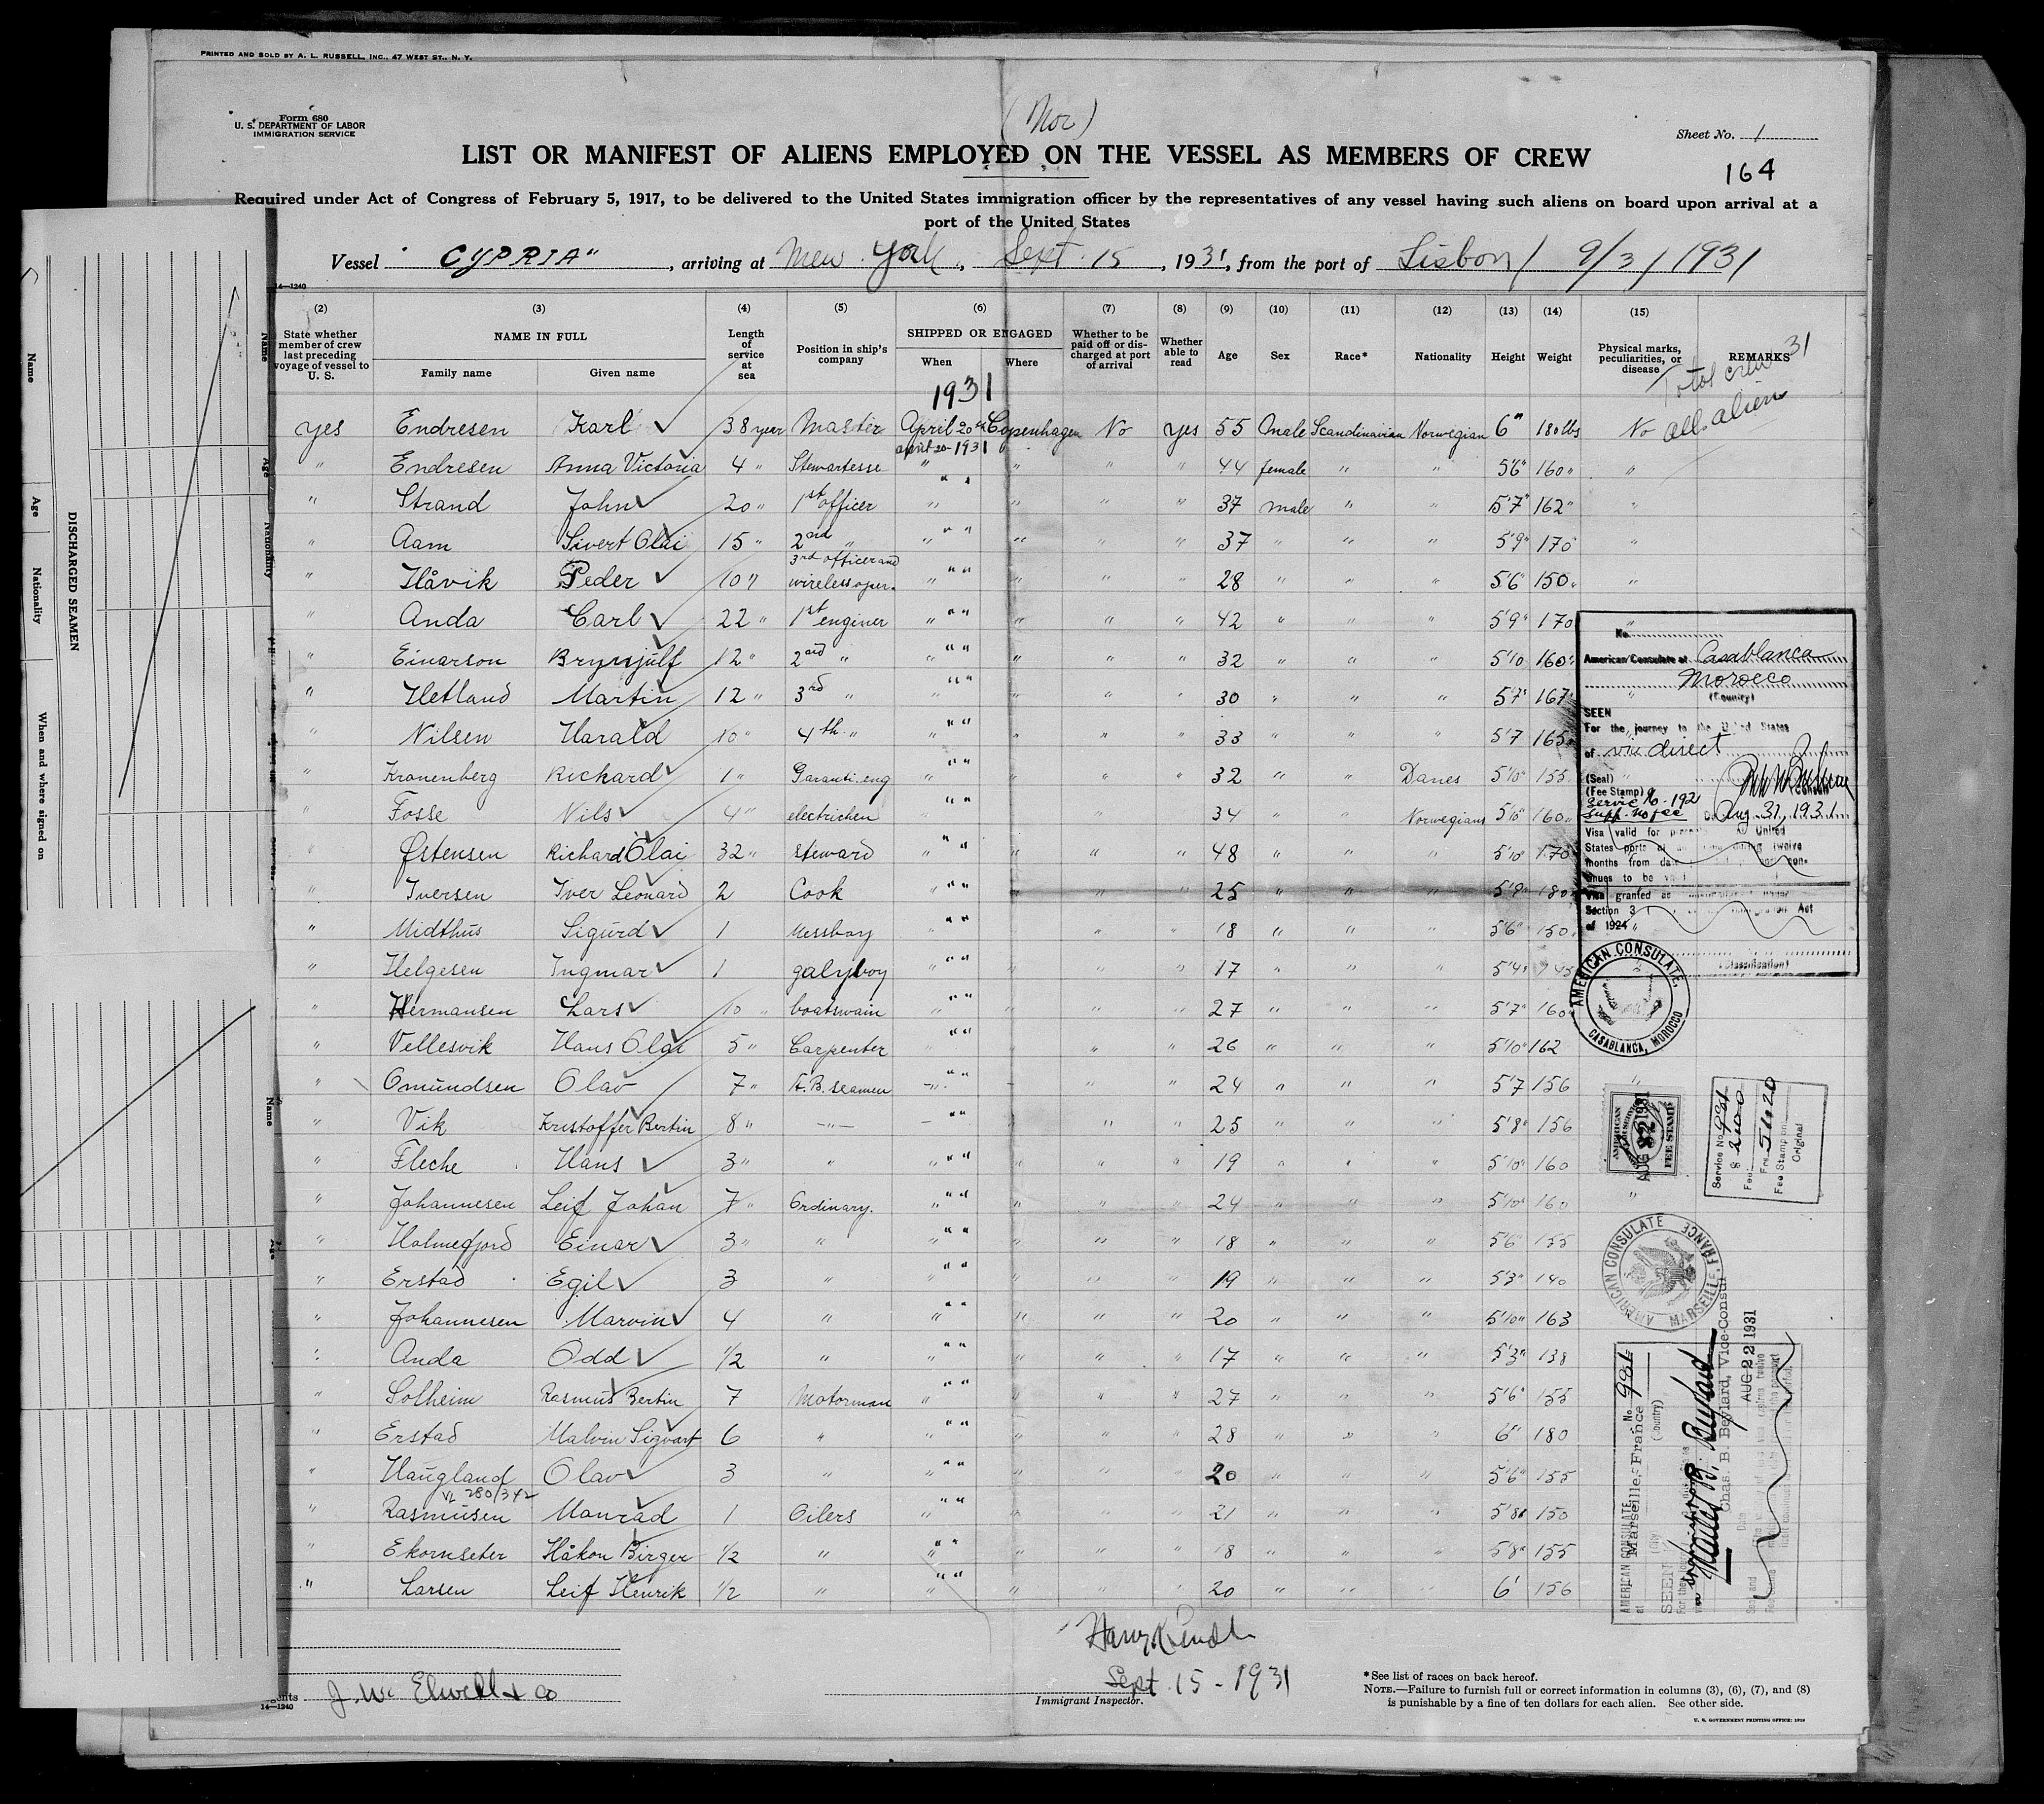 PRINTED AND SOLD BY A. L. RUSSELL, INC., 47 WEST ST., N. Y.
Form 680
U. S. DEPARTMENT OF LABOR
IMMIGRATION SERVICE
(Nor)
Sheet No. 1
LIST OR MANIFEST OF ALIENS EMPLOYED ON THE VESSEL AS MEMBERS OF CREW
164
Required under Act of Congress of February 5, 1917, to be delivered to the United States immigration officer by the representatives of any vessel having such aliens on board upon arrival at a
port of the United States
Vessel "CYPRIA", arriving at New York, Sept. 15, 1931, from the port of Lisbon / 9/3/1931
14—1240
(2) (3) (4) (5) (6) (7) (8) (9) (10) (11) (12) (13) (14) (15)
State whether member of crew last preceding voyage of vessel to U. S. NAME IN FULL Family name Given name Length of service at sea Position in ship's company SHIPPED OR ENGAGED When Where Whether to be paid off or discharged at port of arrival Whether able to read Age Sex Race* Nationality Height Weight Physical marks, peculiarities, or disease REMARKS
31
Total crew
all alien
1931
yes Endresen Karl 38 year Master April 20th Copenhagen No yes 55 Male Scandinavian Norwegian 6" 180 lbs No
april 20- 1931
" Endresen Anna Victoria 4 " Stewartesse " " " " 44 female " " 5'6" 160 " "
" Strand John 20 " 1st officer " " " " 37 male " " 5'7" 162 " "
" Aam Sivert Olai 15 " 2nd " " " " " 37 " " " 5'9" 170 "
" Håvik Peder 10 " 3rd officer and wireless oper. " " " " 28 " " " 5'6" 150 " "
" Anda Carl 22 " 1st enginer " " " " 42 " " " 5'9" 170 "
" Einarson Brynjulf 12 " 2nd " " " " " 32 " " " 5'10 160 "
" Hetland Martin 12 " 3rd " " " " " 30 " " " 5'7" 167 "
" Nilsen Harald 10 " 4th " " " " " 33 " " " 5'7 165 "
" Kronenberg Richard 1 " Garanti. eng " " " " 32 " " Danes 5'10" 155
" Fosse Nils 4 " electrichen " " " " 34 " " Norwegians 5'10" 160 "
" Østensen Richard Olai 32 " steward " " " " 48 " " " 5'10" 170
" Iversen Iver Leonard 2 Cook " " " " 25 " " " 5'9" 180
" Midthus Sigurd 1 Messboy " " " " 18 " " " 5'6" 150
" Helgesen Ingmar 1 galyboy " " " " 17 " " " 5'4" 145
" Hermansen Lars 10 " boatswain " " " " 27 " " " 5'7" 160
" Vellesvik Hans Olai 5 " Carpenter " " " " 26 " " " 5'10" 162
" Omundsen Olav 7 " A. B. seamen " " " " 24 " " " 5'7 156 "
" Vik Kristoffer Bertin 8 " " " " " " 25 " " " 5'8" 156
" Fleche Hans 3 " " " " " " 19 " " " 5'10" 160
" Johannesen Leif Johan 7 " Ordinary. " " " " 24 " " " 5'10" 160 "
" Holmefjord Einar 3 " " " " " " 18 " " " 5'6 155
" Erstad Egil 3 " " " " " 19 " " " 5'3" 140
" Johannesen Marvin 4 " " " " " 20 " " " 5'10" 163
" Anda Odd 1/2 " " " " " 17 " " " 5'3" 138
" Solheim Rasmus Bertin 7 Motorman " " " " 27 " " " 5'6" 155
" Erstad Malvin Sigvart 6 " " " " " 28 " " " 6" 180
" Haugland Olav 3 " " " " " 20 " " " 5'6" 155
VL 280/342
" Rasmusen Monrad 1 Oilers " " " " 21 " " " 5'8" 150
" Ekornseter Håkon Birger 1/2 " " " " " 18 " " " 5'8" 155
" Larsen Leif Henrik 1/2 " " " " " 20 " " " 6' 156
No.
American Consulate at Casablanca
Morocco
(Country)
SEEN
For the journey to the United States
of via direct
(Seal)
(Fee Stamp)
Consul
Service No. 192
Supp. No fee
Aug. 31, 1931
Visa valid for United
States ports during twelve
months from date
Visa granted as
Section 3 Act
of 1924
(Classification)
AMERICAN CONSULATE, CASABLANCA, MOROCCO
AMERICAN FEE STAMP
AUG 22 1931
Service No. 991
Fee Frs.
Fee Stamp on Original
AMERICAN CONSULATE MARSEILLE, FRANCE
AMERICAN CONSULATE
at Marseille, France No. 991
(City (Country)
SEEN
Chas. B. Beylard, Vice-Consul
Date AUG 22 1931
Name
Age
Nationality
When and where signed on
DISCHARGED SEAMEN
Name
Age
Nationality
Name
Age
J. W. Elwell & Co
14—1240
Sept. 15 - 1931
Immigrant Inspector.
* See list of races on back hereof.
NOTE.—Failure to furnish full or correct information in columns (3), (6), (7), and (8)
is punishable by a fine of ten dollars for each alien. See other side.
U. S. GOVERNMENT PRINTING OFFICE: